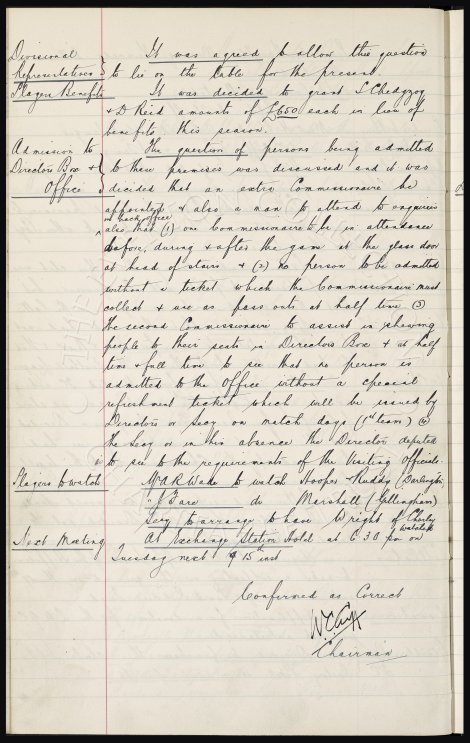 Divisional
Representatives
It was agreed to allow this question
to lie on the table for the present.
Players Benefits
It was decided to grant S Chedgzoy
& D Reid amounts of £650 each in lieu of
benefits this season.
Admission to
Directors Box &
Office
The question of persons being admitted
to these premises was discussed and it was
decided that an extra Commissionaire be
appointed & also a man to attend to enquiries
at back office
also that (1) one Commissionaire to be in attendance
before, during & after the game at the glass door
at head of stairs & (2) no person to be admitted
without a ticket which the Commissionaire must
collect & use as pass outs at half time (3)
the second Commissionaire to assist in shewing
people to their seats in Directors Box & at half
time & full time to see that no person is
admitted to the Office without a special
refreshment ticket which will be issued by
Directors or Secy on match days (1st team) (4)
the Secy or in his absence the Director deputed
to see to the requirements of the Visiting Officials.
Players to watch
Mr A R Wade to watch Hooper & Ruddy (Darlington)
" J Fare do Marshall (Gillingham)
Secy to arrange to have Wright of Chorley
watched
Next Meeting
At Exchange Station Hotel at 6.30 pm on
Tuesday next 15 inst
Confirmed as Correct
W C Cuff
Chairman